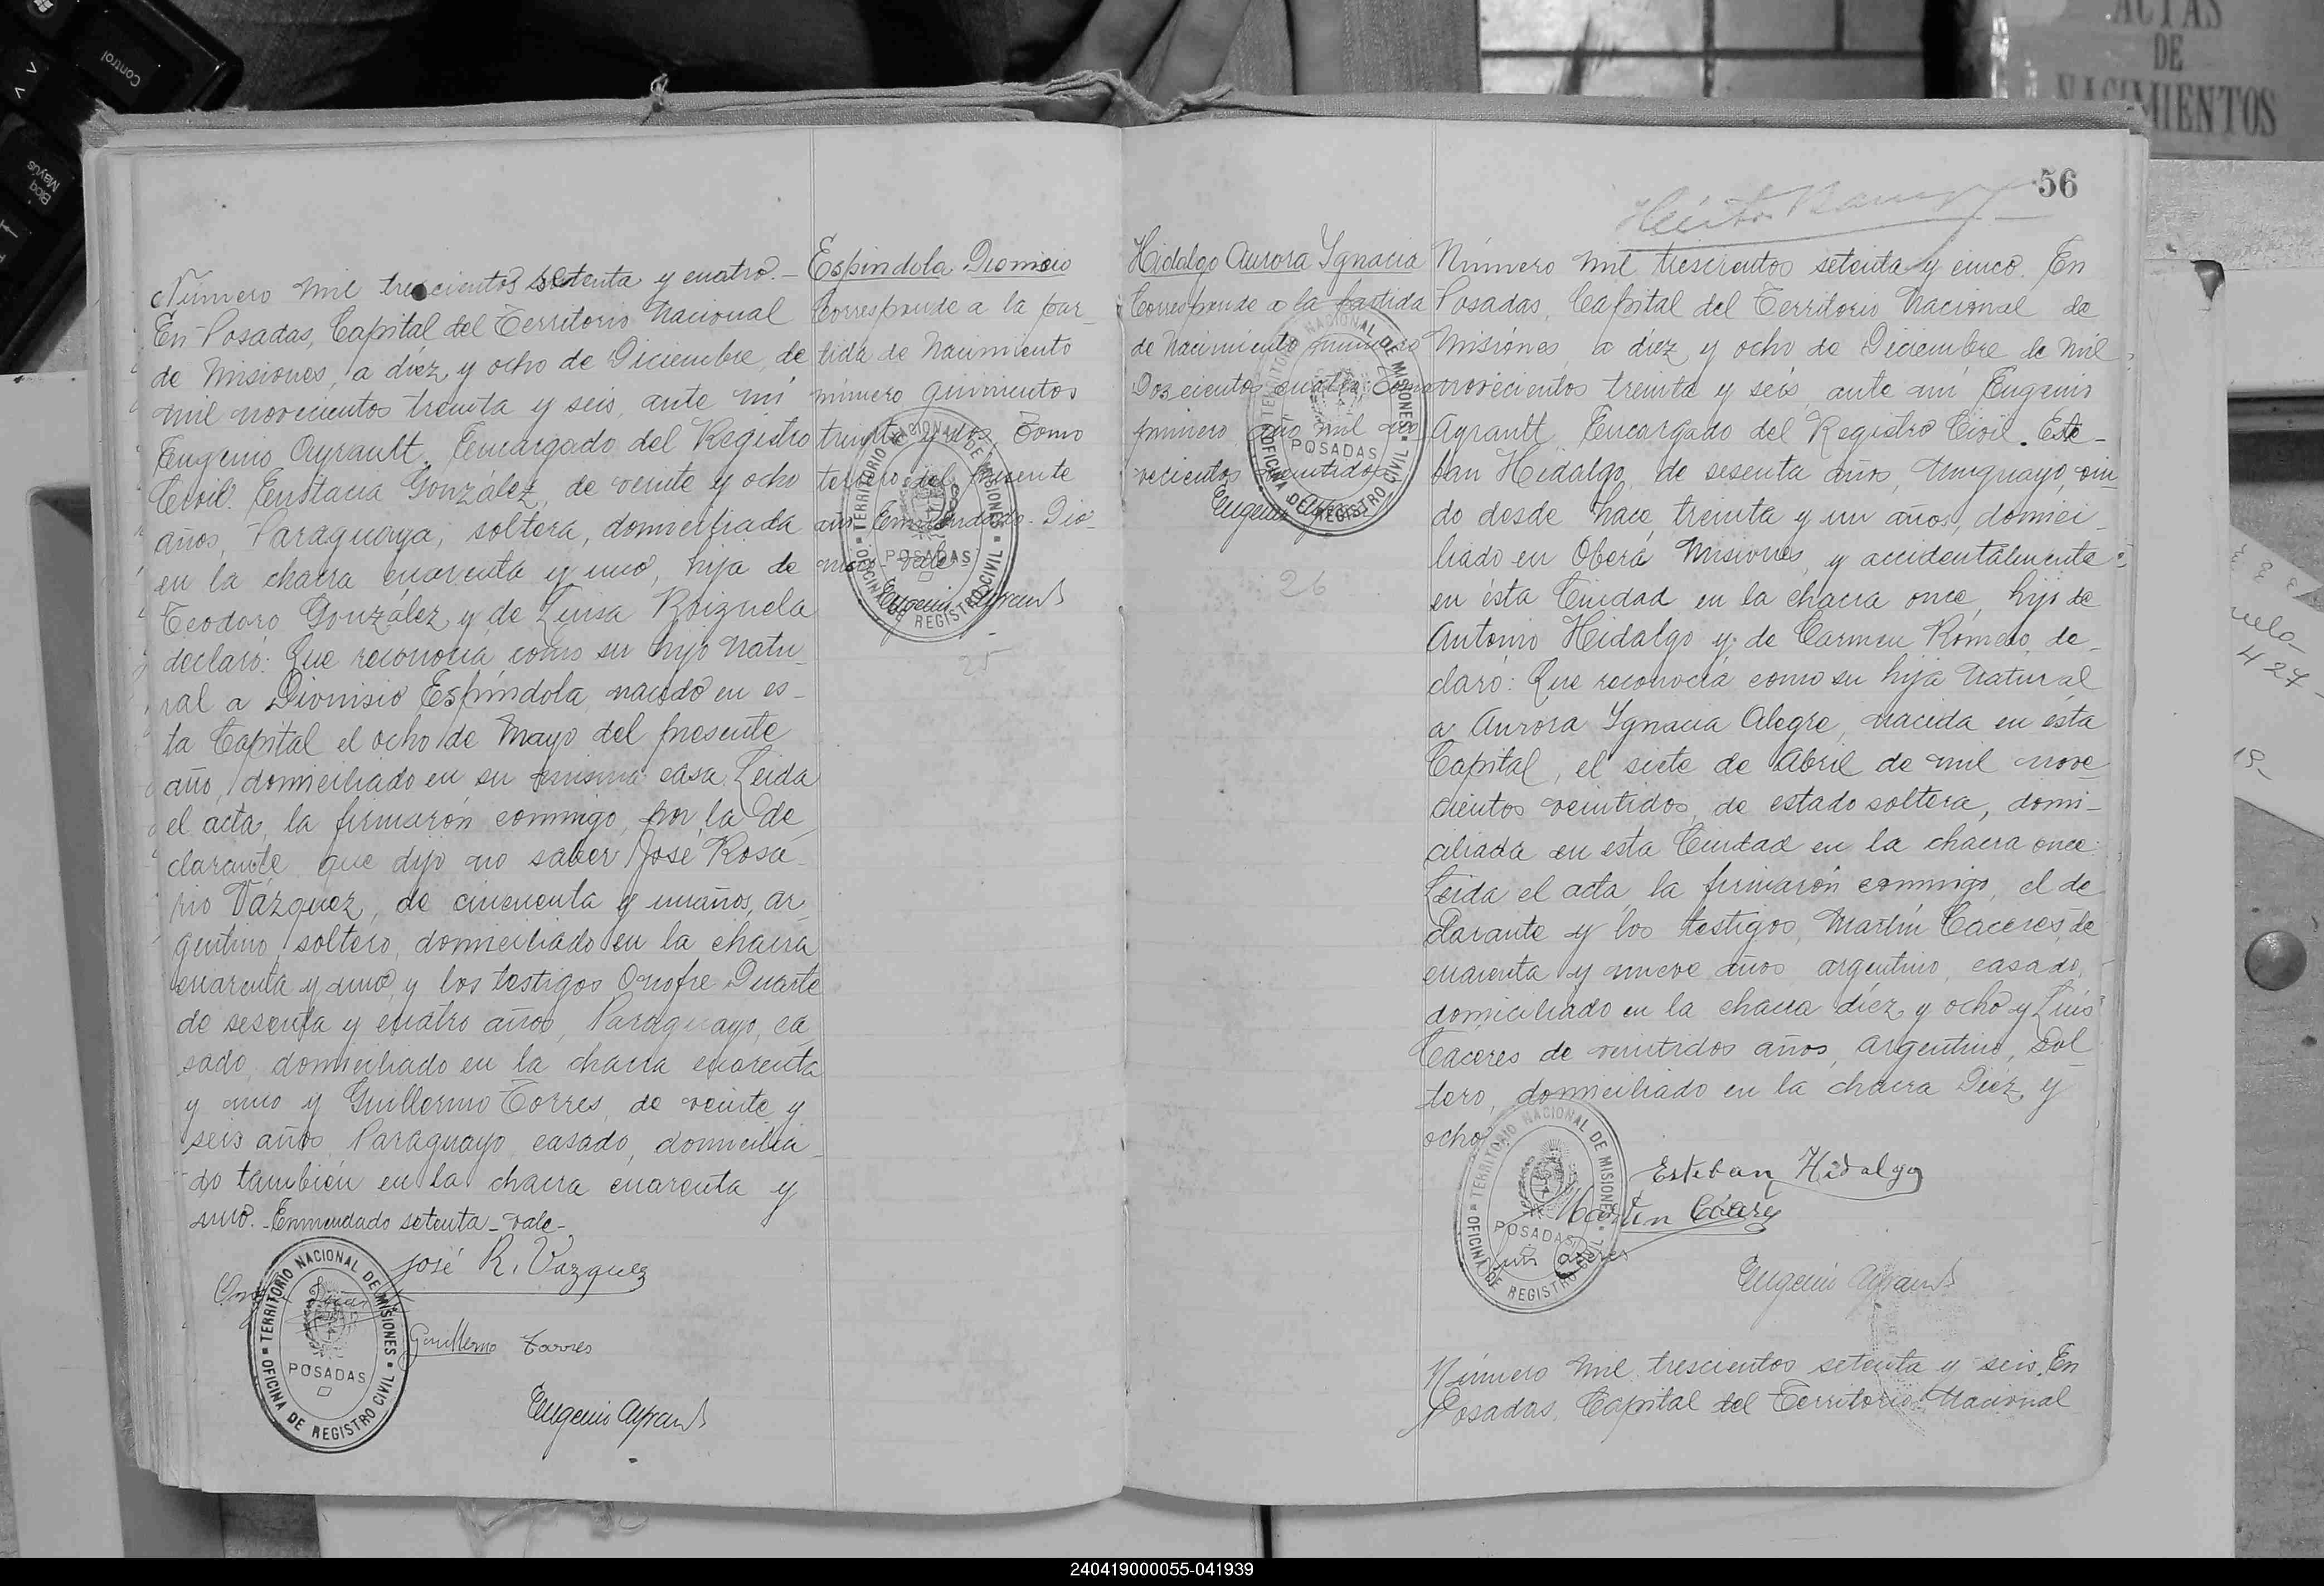 Número mil trescientos setenta y cuatro.-
En Posadas, Capital del Territorio Nacional
de Misiones, a diez y ocho de Diciembre de
mil novecientos treinta y seis, ante mí
Eugenio Ayrault, Encargado del Registro
Civil. Eustacia González, de veinte y ocho
años, Paraguaya, soltera, domiciliada
en la chacra cuarenta y uno, hija de
Teodoro González y de Luisa
declaró: Que reconocía como su hijo natu-
ral a Dionisio Espíndola, nacido en es-
ta Capital el ocho de Mayo del presente
año, domiciliado en su misma casa. Leída
el acta, la firmarón conmigo, por la de-
clarante que dijo no saber José Rosa-
rio Vázquez, de cincuenta y un años, ar-
gentino, soltero, domiciliado en la chacra
cuarenta y uno, y los testigos Onofre Duarte
de sesenta y cuatro años, Paraguayo, ca-
sado, domiciliado en la chacra cuarenta
y uno y Guillermo Torres, de veinte y
seis años, Paraguayo, casado, domicilia-
do también en la chacra cuarenta y
uno.-Enmendado setenta-vale-
José R. Vazquez
Guillermo Torres
Eugenio Ayrault
TERRITORIO NACIONAL DE MISIONES
POSADAS
OFICINA DE REGISTRO CIVIL
Espíndola Dionisio
Corresponde a la par-
tida de Nacimiento
número quinientos
treinta y dos, Tomo
tercero del presente
año. Enmendado-Dio-
nisio-vale
Eugenio Ayrault
TERRITORIO NACIONAL DE MISIONES
POSADAS
OFICINA DE REGISTRO CIVIL
25
Hidalgo Aurora Ygnacia
Corresponde a la partida
de Nacimiento número
Doscientos cuatro Tomo
primero año mil no-
vecientos veintidos
Eugenio
TERRITORIO NACIONAL DE MISIONES
POSADAS
OFICINA DE REGISTRO CIVIL
26
56
Número mil trescientos setenta y cinco. En
Posadas, Capital del Territorio Nacional de
Misiónes a diez y ocho de Diciembre de mil
novecientos treinta y seis, ante mí Eugenio
Ayrault, Encargado del Registro Civil. Este-
ban Hidalgo, de sesenta años, Uruguayo, viu-
do desde hace treinta y un años, domici-
liado en Oberá Misiones, y accidentalmente
en ésta Ciudad en la chacra once, hijo de
Antonio Hidalgo y de Carmen Romero, de-
claró: Que reconocía como su hija natural
a Aurora Ygnacia Alegre, nacida en ésta
Capital, el siete de Abril de mil nove-
cientos veintidos, de estado soltera, domi-
ciliada en esta Ciudad en la chacra once.
Leída el acta, la firmarón conmigo, el de-
clarante y los testigos, Martín Caceres, de
cuarenta y nueve años, argentino, casado,
domiciliado en la chacra diez y ocho y Luis
Cáceres de veintidos años, argentino, sol-
tero, domiciliado en la chacra Diez y
ocho
Esteban Hidalgo
Martin Caceres
Luis Caceres
Eugenio Ayrault
TERRITORIO NACIONAL DE MISIONES
POSADAS
OFICINA DE REGISTRO CIVIL
Número mil trescientos setenta y seis. En
Posadas, Capital del Territorio Nacional
ACTAS
DE
NACIMIENTOS
Control
Bloq
Mayús
427
240419000055-041939